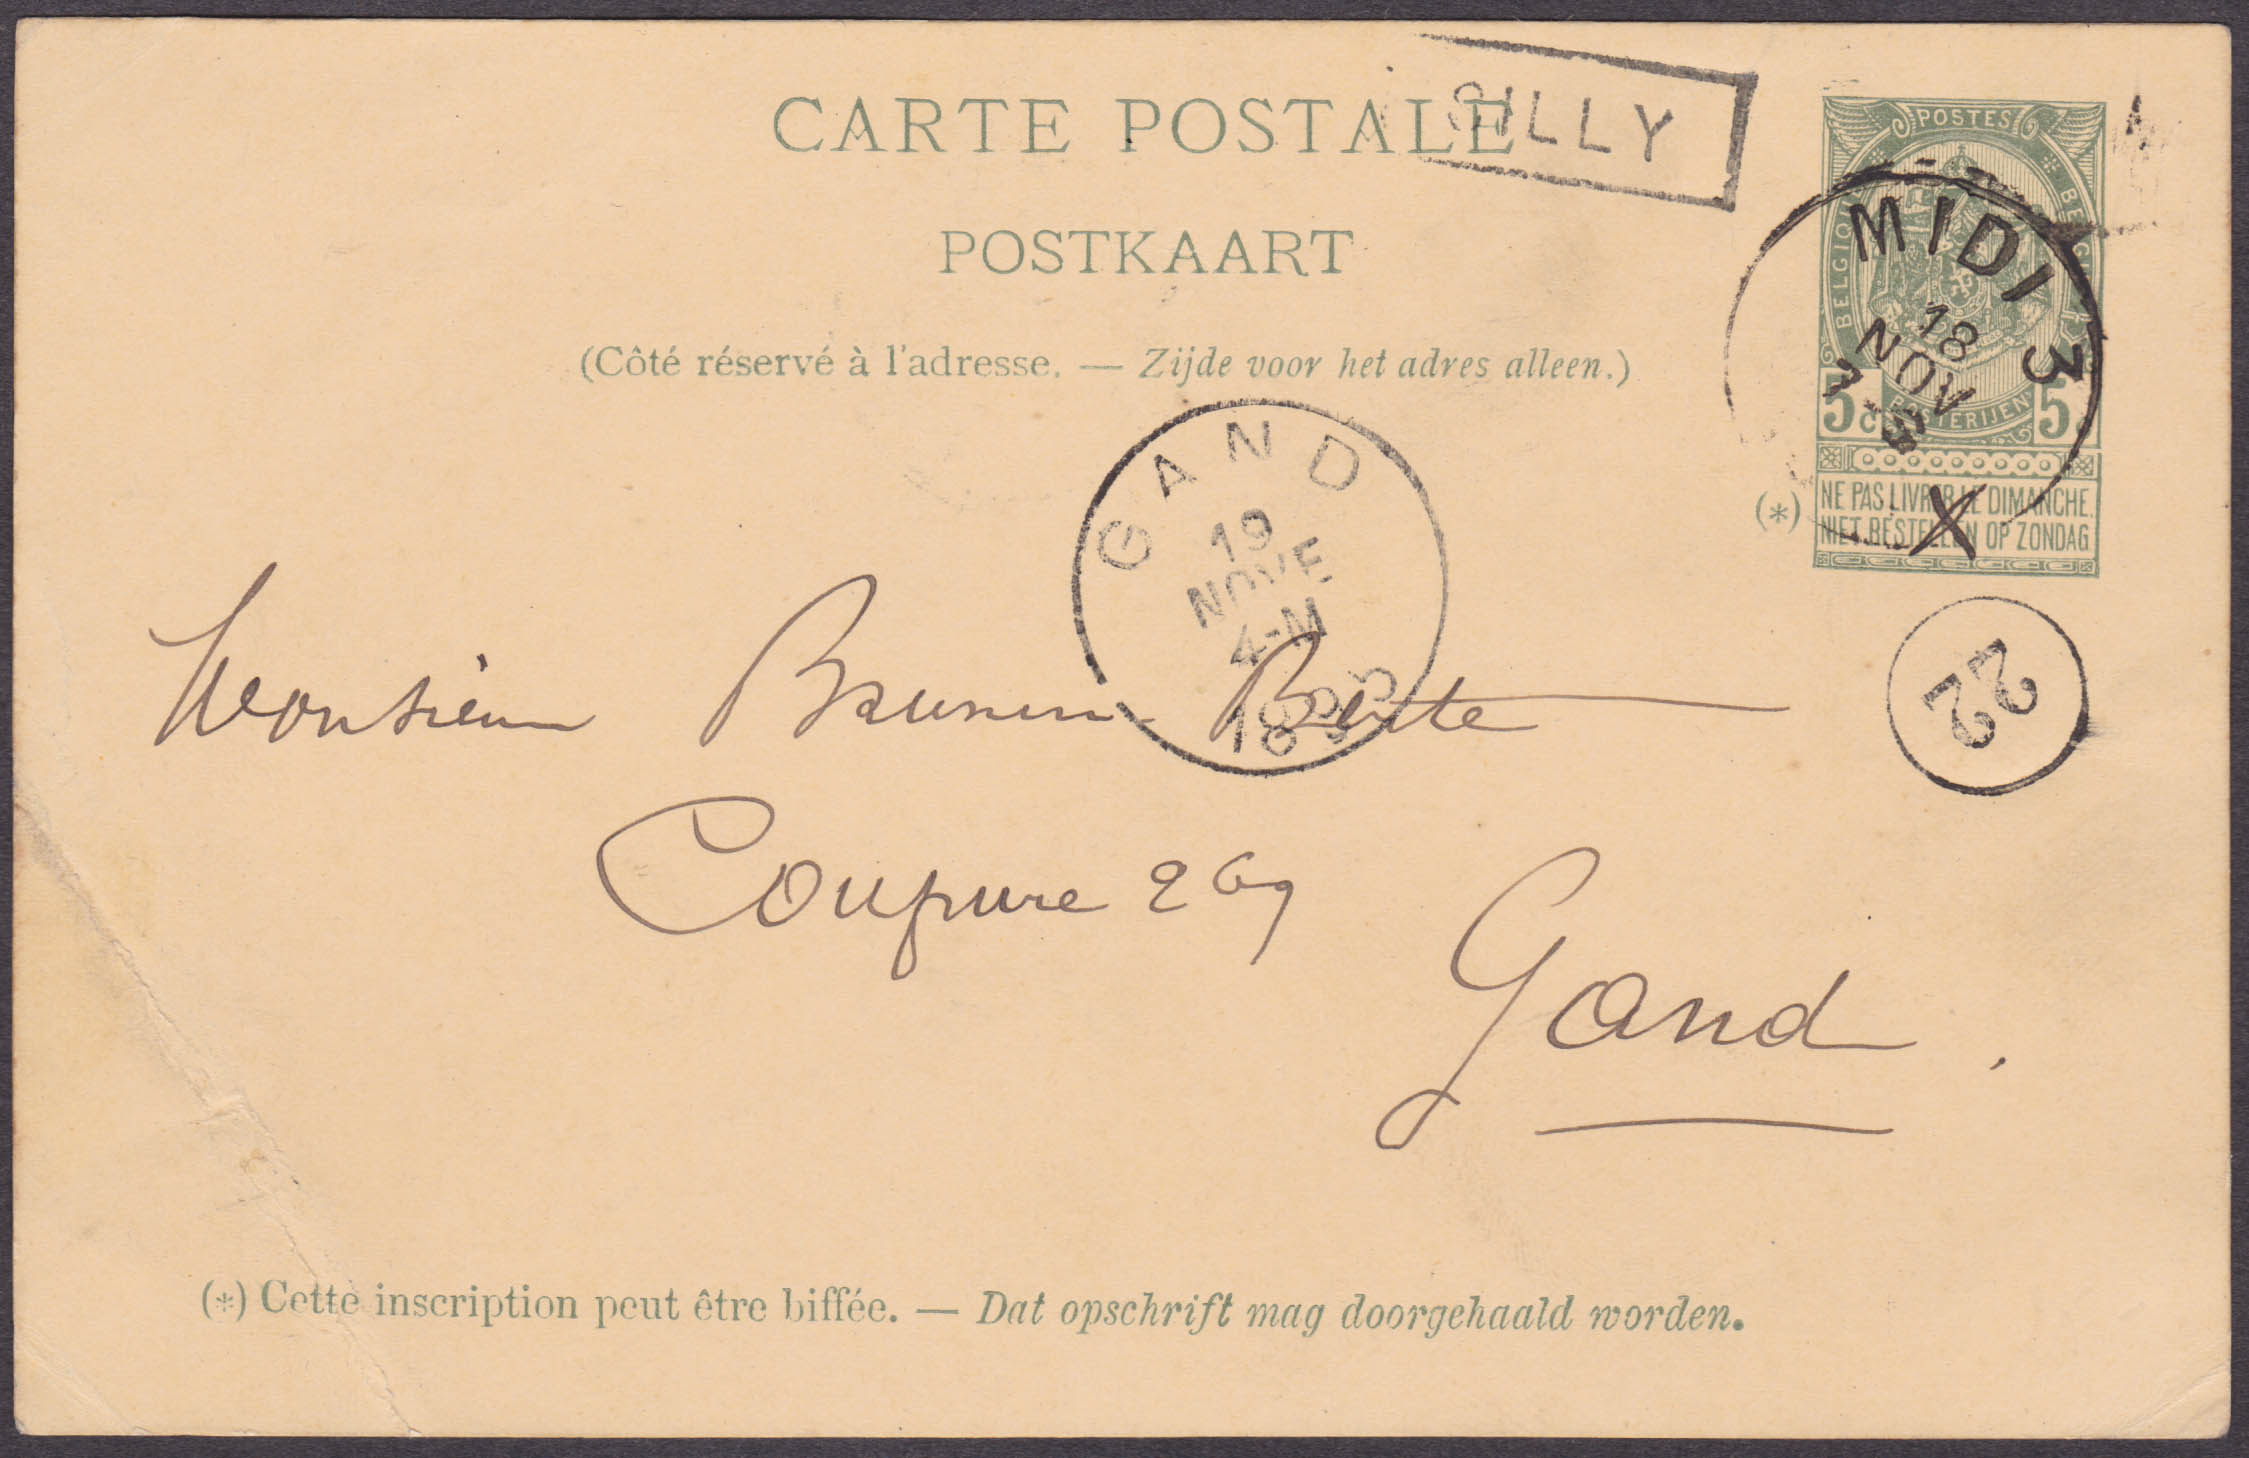 SILLY
CARTE POSTALE
POSTKAART
(Côté réservé à l'adresse. — Zijde voor het adres alleen.)
POSTES
BELGIQUE
BELGIË
MIDI 3
18
NOV
5c
POSTERIJEN
5c
(*)
NE PAS LIVRER LE DIMANCHE.
NIET BESTELLEN OP ZONDAG
X
GAND
19
NOVE
4-M
22
Monsieur
Coupure 269
Gand.
(*) Cette inscription peut être biffée. — Dat opschrift mag doorgehaald worden.